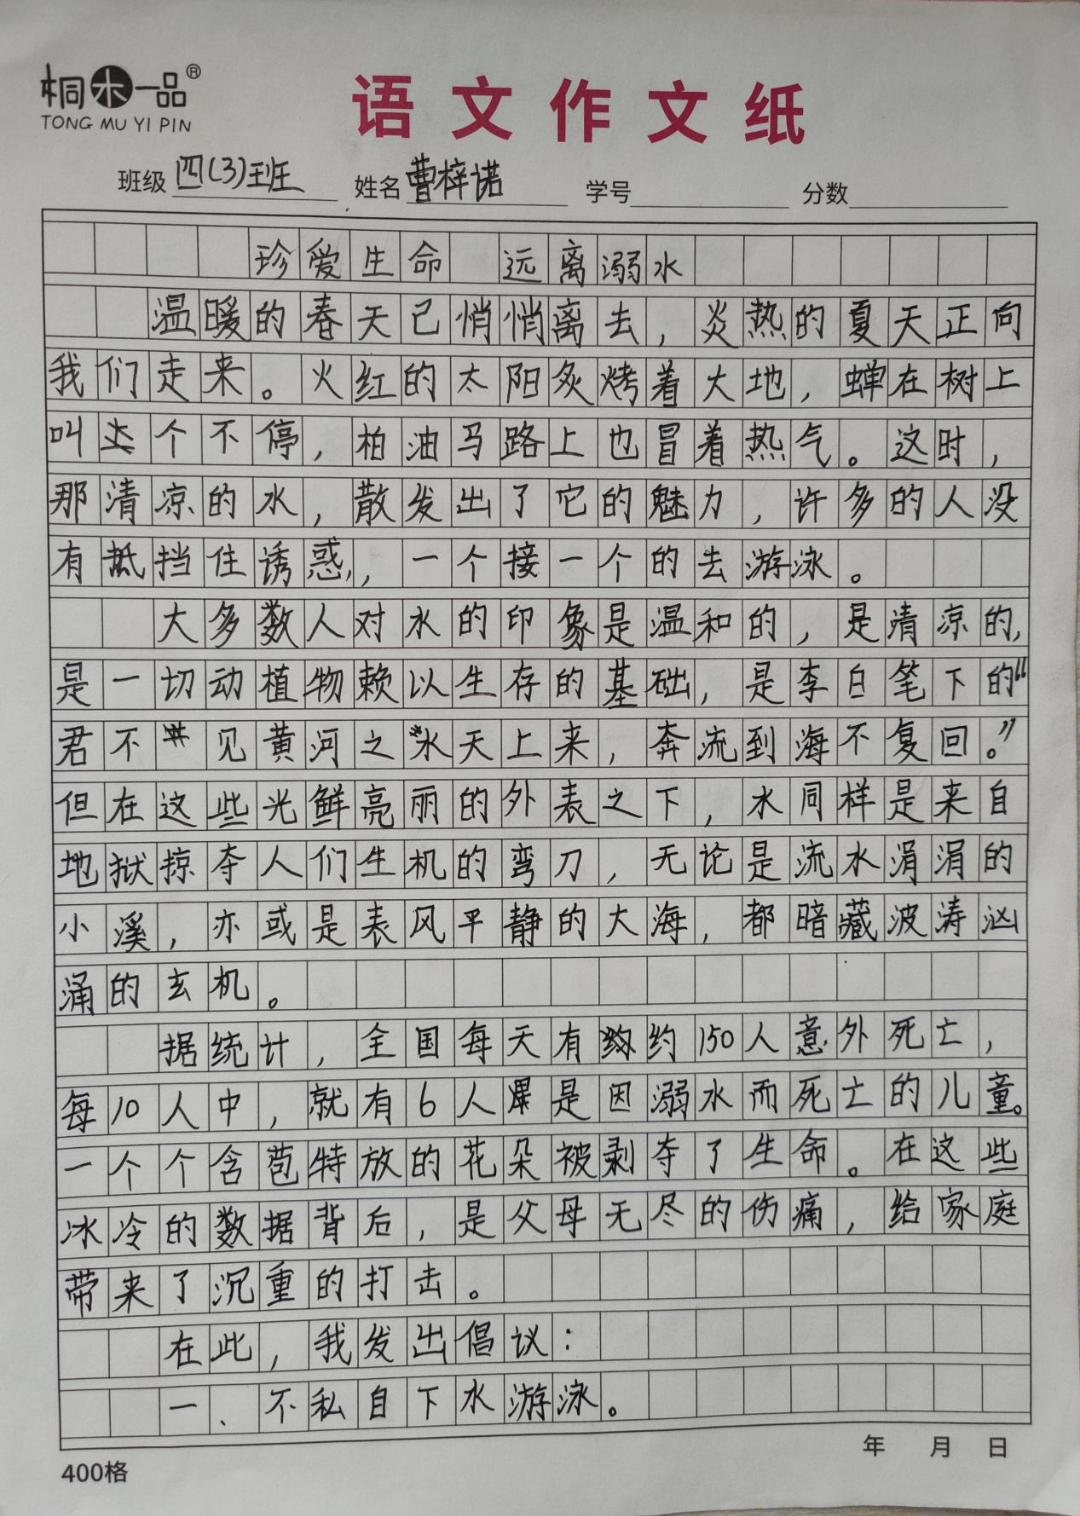 桐木一品®
TONG MU YI PIN
语文作文纸
班级 四(3)班 姓名 曹梓诺 学号 分数
珍爱生命 远离溺水
温暖的春天已悄悄离去，炎热的夏天正向
我们走来。火红的太阳炙烤着大地，蝉在树上
叫个不停，柏油马路上也冒着热气。这时，
那清凉的水，散发出了它的魅力，许多的人没
有抵挡住诱惑，一个接一个的去游泳。
大多数人对水的印象是温和的，是清凉的，
是一切动植物赖以生存的基础，是李白笔下的“
君不见黄河之水天上来，奔流到海不复回。”
但在这些光鲜亮丽的外表之下，水同样是来自
地狱掠夺人们生机的弯刀，无论是流水涓涓的
小溪，亦或是表风平静的大海，都暗藏波涛汹
涌的玄机。
据统计，全国每天有约150人意外死亡，
每10人中，就有6人是因溺水而死亡的儿童。
一个个含苞特放的花朵被剥夺了生命。在这些
冰冷的数据背后，是父母无尽的伤痛，给家庭
带来了沉重的打击。
在此，我发出倡议：
一、不私自下水游泳。
年 月 日
400格